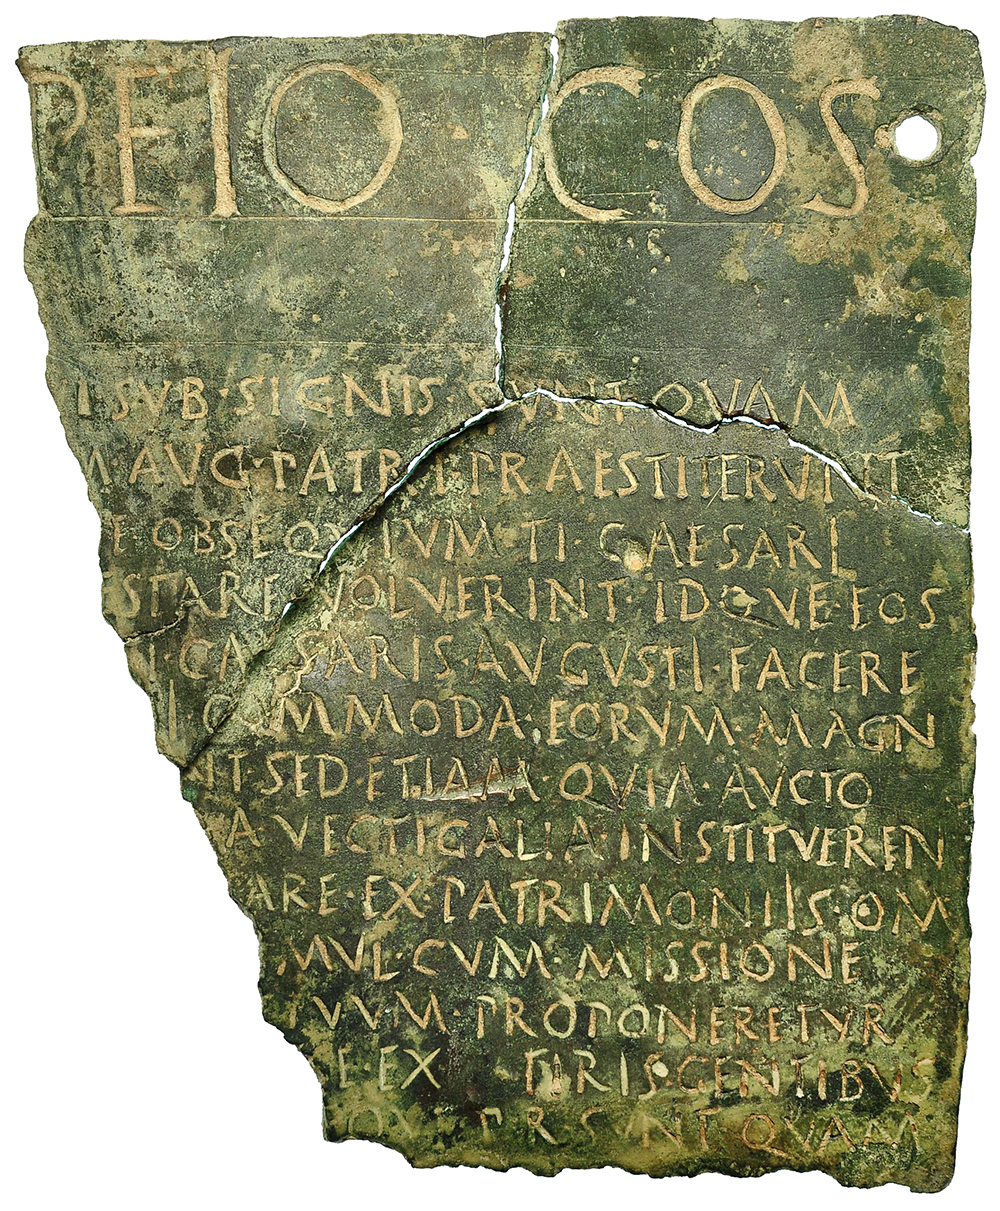 PEIO · COS
I SVB · SIGNIS · SVNT QVAM
M AVG · PATRI · PRAESTITERVNT
E OBSEQVIVM · TI · CAESARI
STARE VOLVERINT · IDQVE · EOS
I · CAESARIS · AVGVSTI · FACERE
I · COMMODA · EORVM · MAGN
NT · SED · ETIAM · QVIA · AVCTO
A · VECTIGALIA · INSTITVEREN
ARE · EX · PATRIMONIIS · OM
MVL · CVM · MISSIONE
IVVM · PROPONERETVR
E · EX GENTIBVS
SVNT QVAM